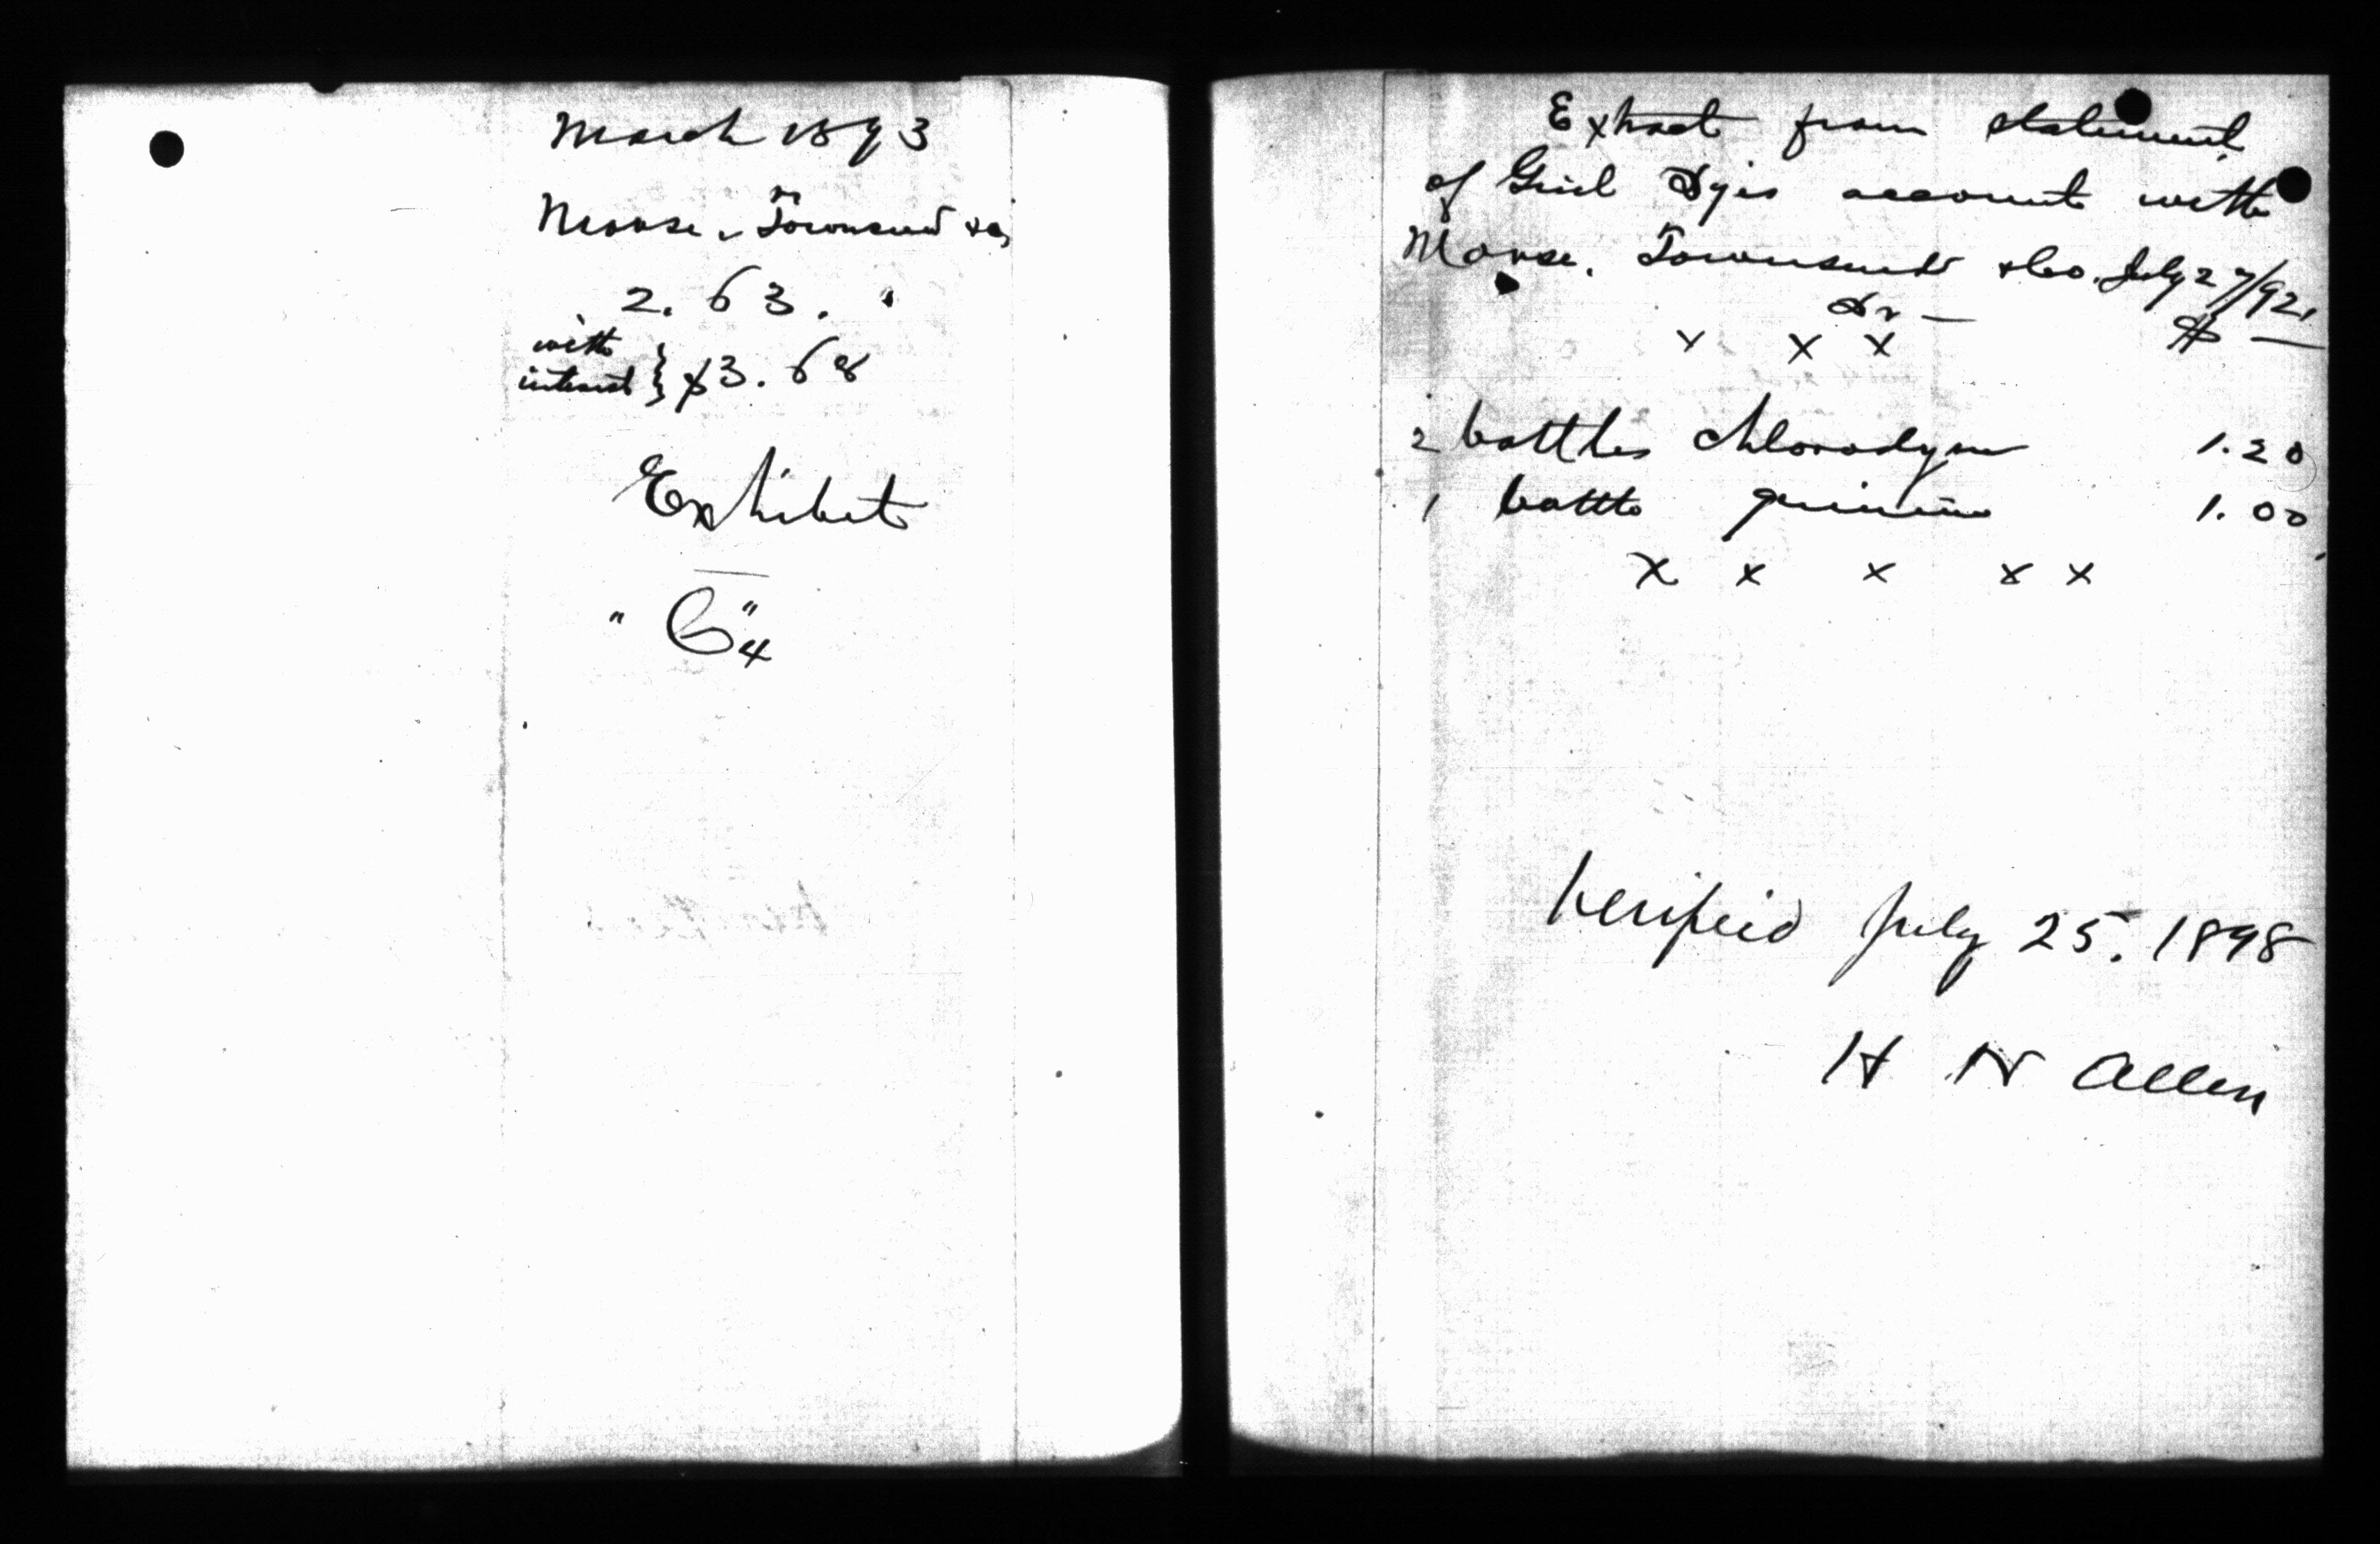 March 1893
Morse, Townsend & Co,
2.63.
with
interest } $3.68
Exhibit
" C "4
Extract from statement
of Grid Dyis account with
Morse. Townsend & Co. July 27/92,
Dr —
x x x $ —
2 bottles chlorodyne 1.20
1 bottle quinine 1.00
x x x x x
Verified July 25. 1898
H N Allen